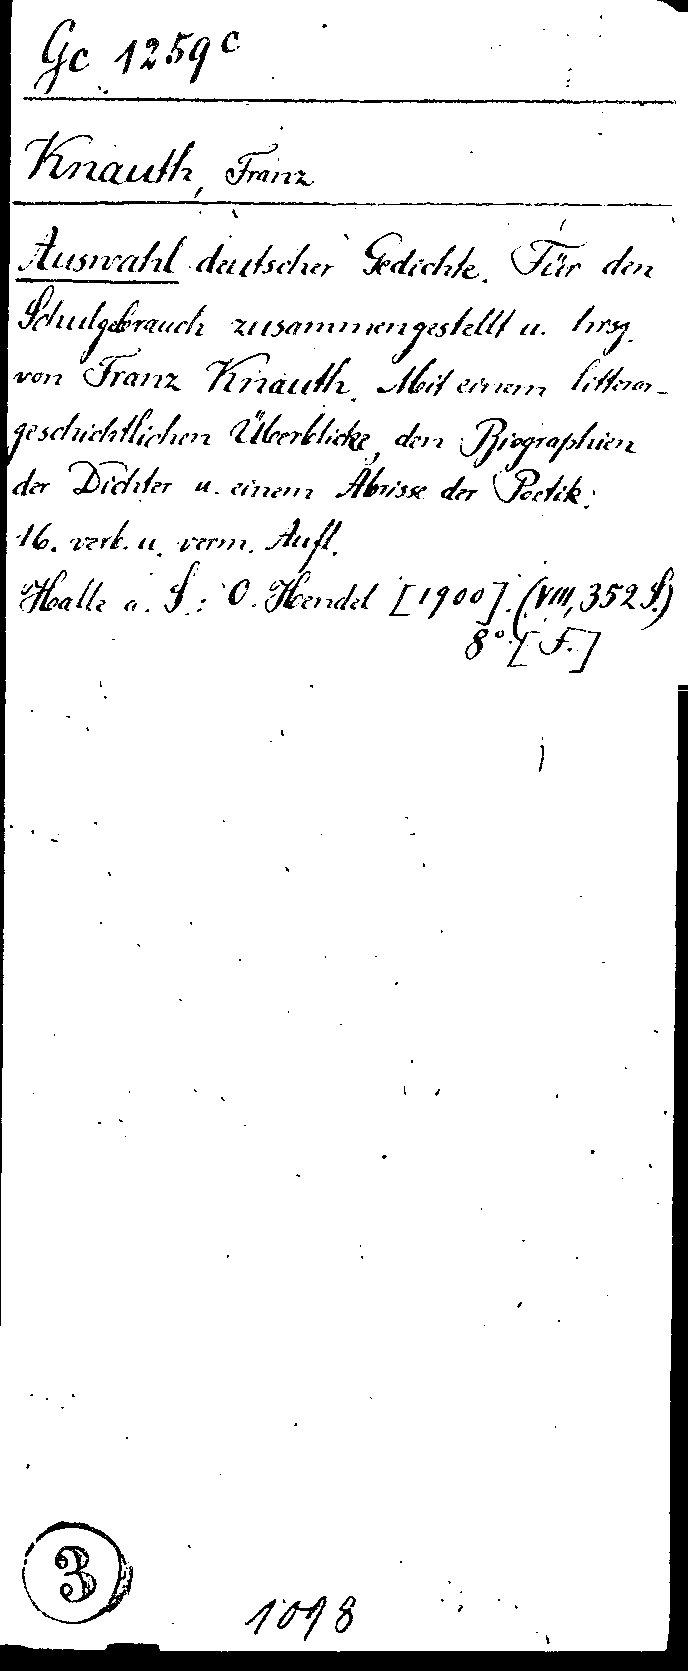 Gc 1259c
Knauth, Franz
Auswahl deutscher Gedichte. Für den
Schulgebrauch zusammengestellt u. hrsg.
von Franz Knauth. Mit einem litterar-
geschichtlichen Überblicke, den Biographien
der Dichter u. einem Abrisse der Poetik.
16. verb. u. verm. Aufl.
Halle a. S.: O. Hendel [1900]. (VIII, 352 S.)
8°. [F.]
3
1098